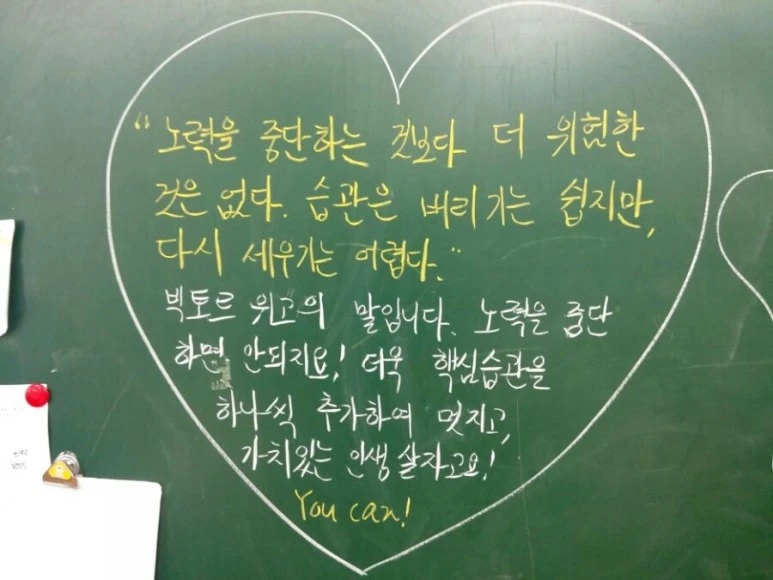 "노력을 중단하는 것보다 더 위험한
것은 없다. 습관은 버리기는 쉽지만,
다시 세우기는 어렵다."
빅토르 위고의 말입니다. 노력을 중단
하면 안되지요! 더욱 핵심습관을
하나씩 추가하여 멋지고,
가치있는 인생 살자고요!
You can!